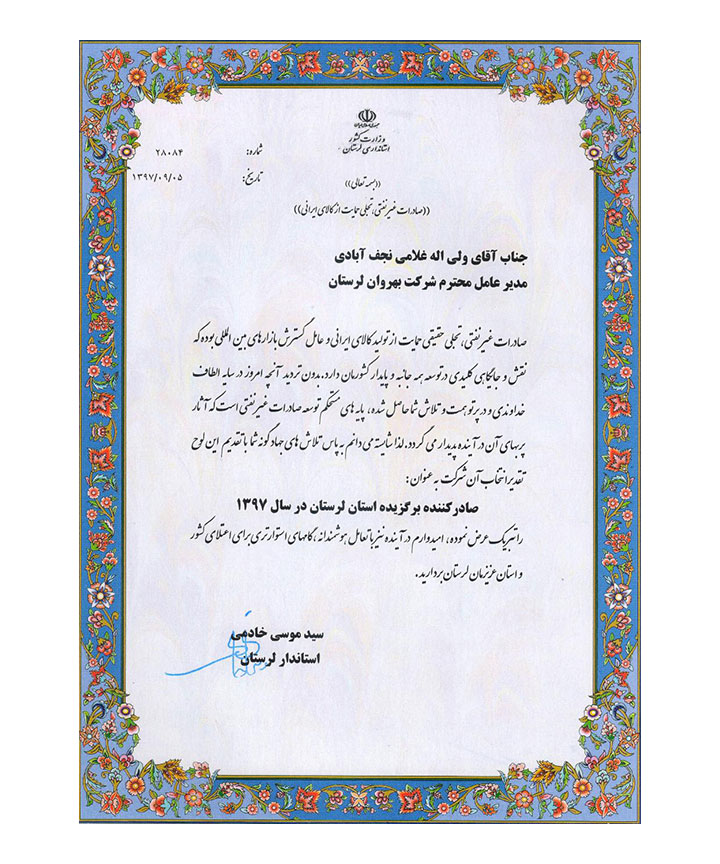 جمهوری اسلامی ایران
وزارت کشور
استانداری لرستان
شماره: ۲۸۰۸۴
تاریخ: ۱۳۹۷/۰۹/۰۵
((بسمه تعالی))
((صادرات غیرنفتی، تجلی حمایت از کالای ایرانی))
جناب آقای ولی اله غلامی نجف آبادی
مدیر عامل محترم شرکت بهروان لرستان
صادرات غیرنفتی، تجلی حقیقی حمایت از تولید کالای ایرانی و عامل گسترش بازارهای بین المللی بوده که
نقش و جایگاهی کلیدی در توسعه همه جانبه و پایدار کشورمان دارد. بدون تردید آنچه امروز در سایه الطاف
خداوندی و در پرتو همت و تلاش شما حاصل شده، پایه های مستحکم توسعه صادرات غیرنفتی است که آثار
پربهای آن در آینده پدیدار می گردد. لذا شایسته می دانم به پاس تلاش های جهادگونه شما با تقدیم این لوح
تقدیر انتخاب آن شرکت به عنوان:
صادرکننده برگزیده استان لرستان در سال ۱۳۹۷
را تبریک عرض نموده، امیدوارم در آینده نیز با تعامل هوشمندانه، گامهای استوارتری برای اعتلای کشور
و استان عزیزمان لرستان بردارید.
سید موسی خادمی
استاندار لرستان